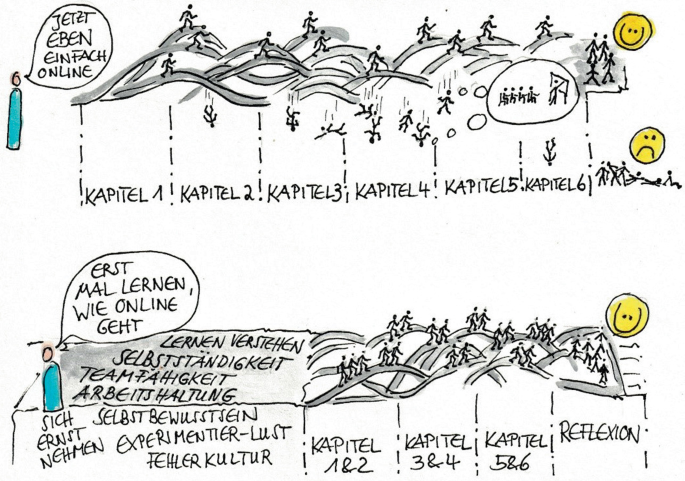 JETZT
EBEN
EINFACH
ONLINE
KAPITEL 1
KAPITEL 2
KAPITEL 3
KAPITEL 4
KAPITEL 5
KAPITEL 6
ERST
MAL LERNEN,
WIE ONLINE
GEHT
LERNEN VERSTEHEN
SELBSTSTÄNDIGKEIT
TEAMFÄHIGKEIT
ARBEITSHALTUNG
SICH
ERNST
NEHMEN
SELBSTBEWUSSTSEIN
EXPERIMENTIER-LUST
FEHLERKULTUR
KAPITEL
1&2
KAPITEL
3&4
KAPITEL
5&6
REFLEXION